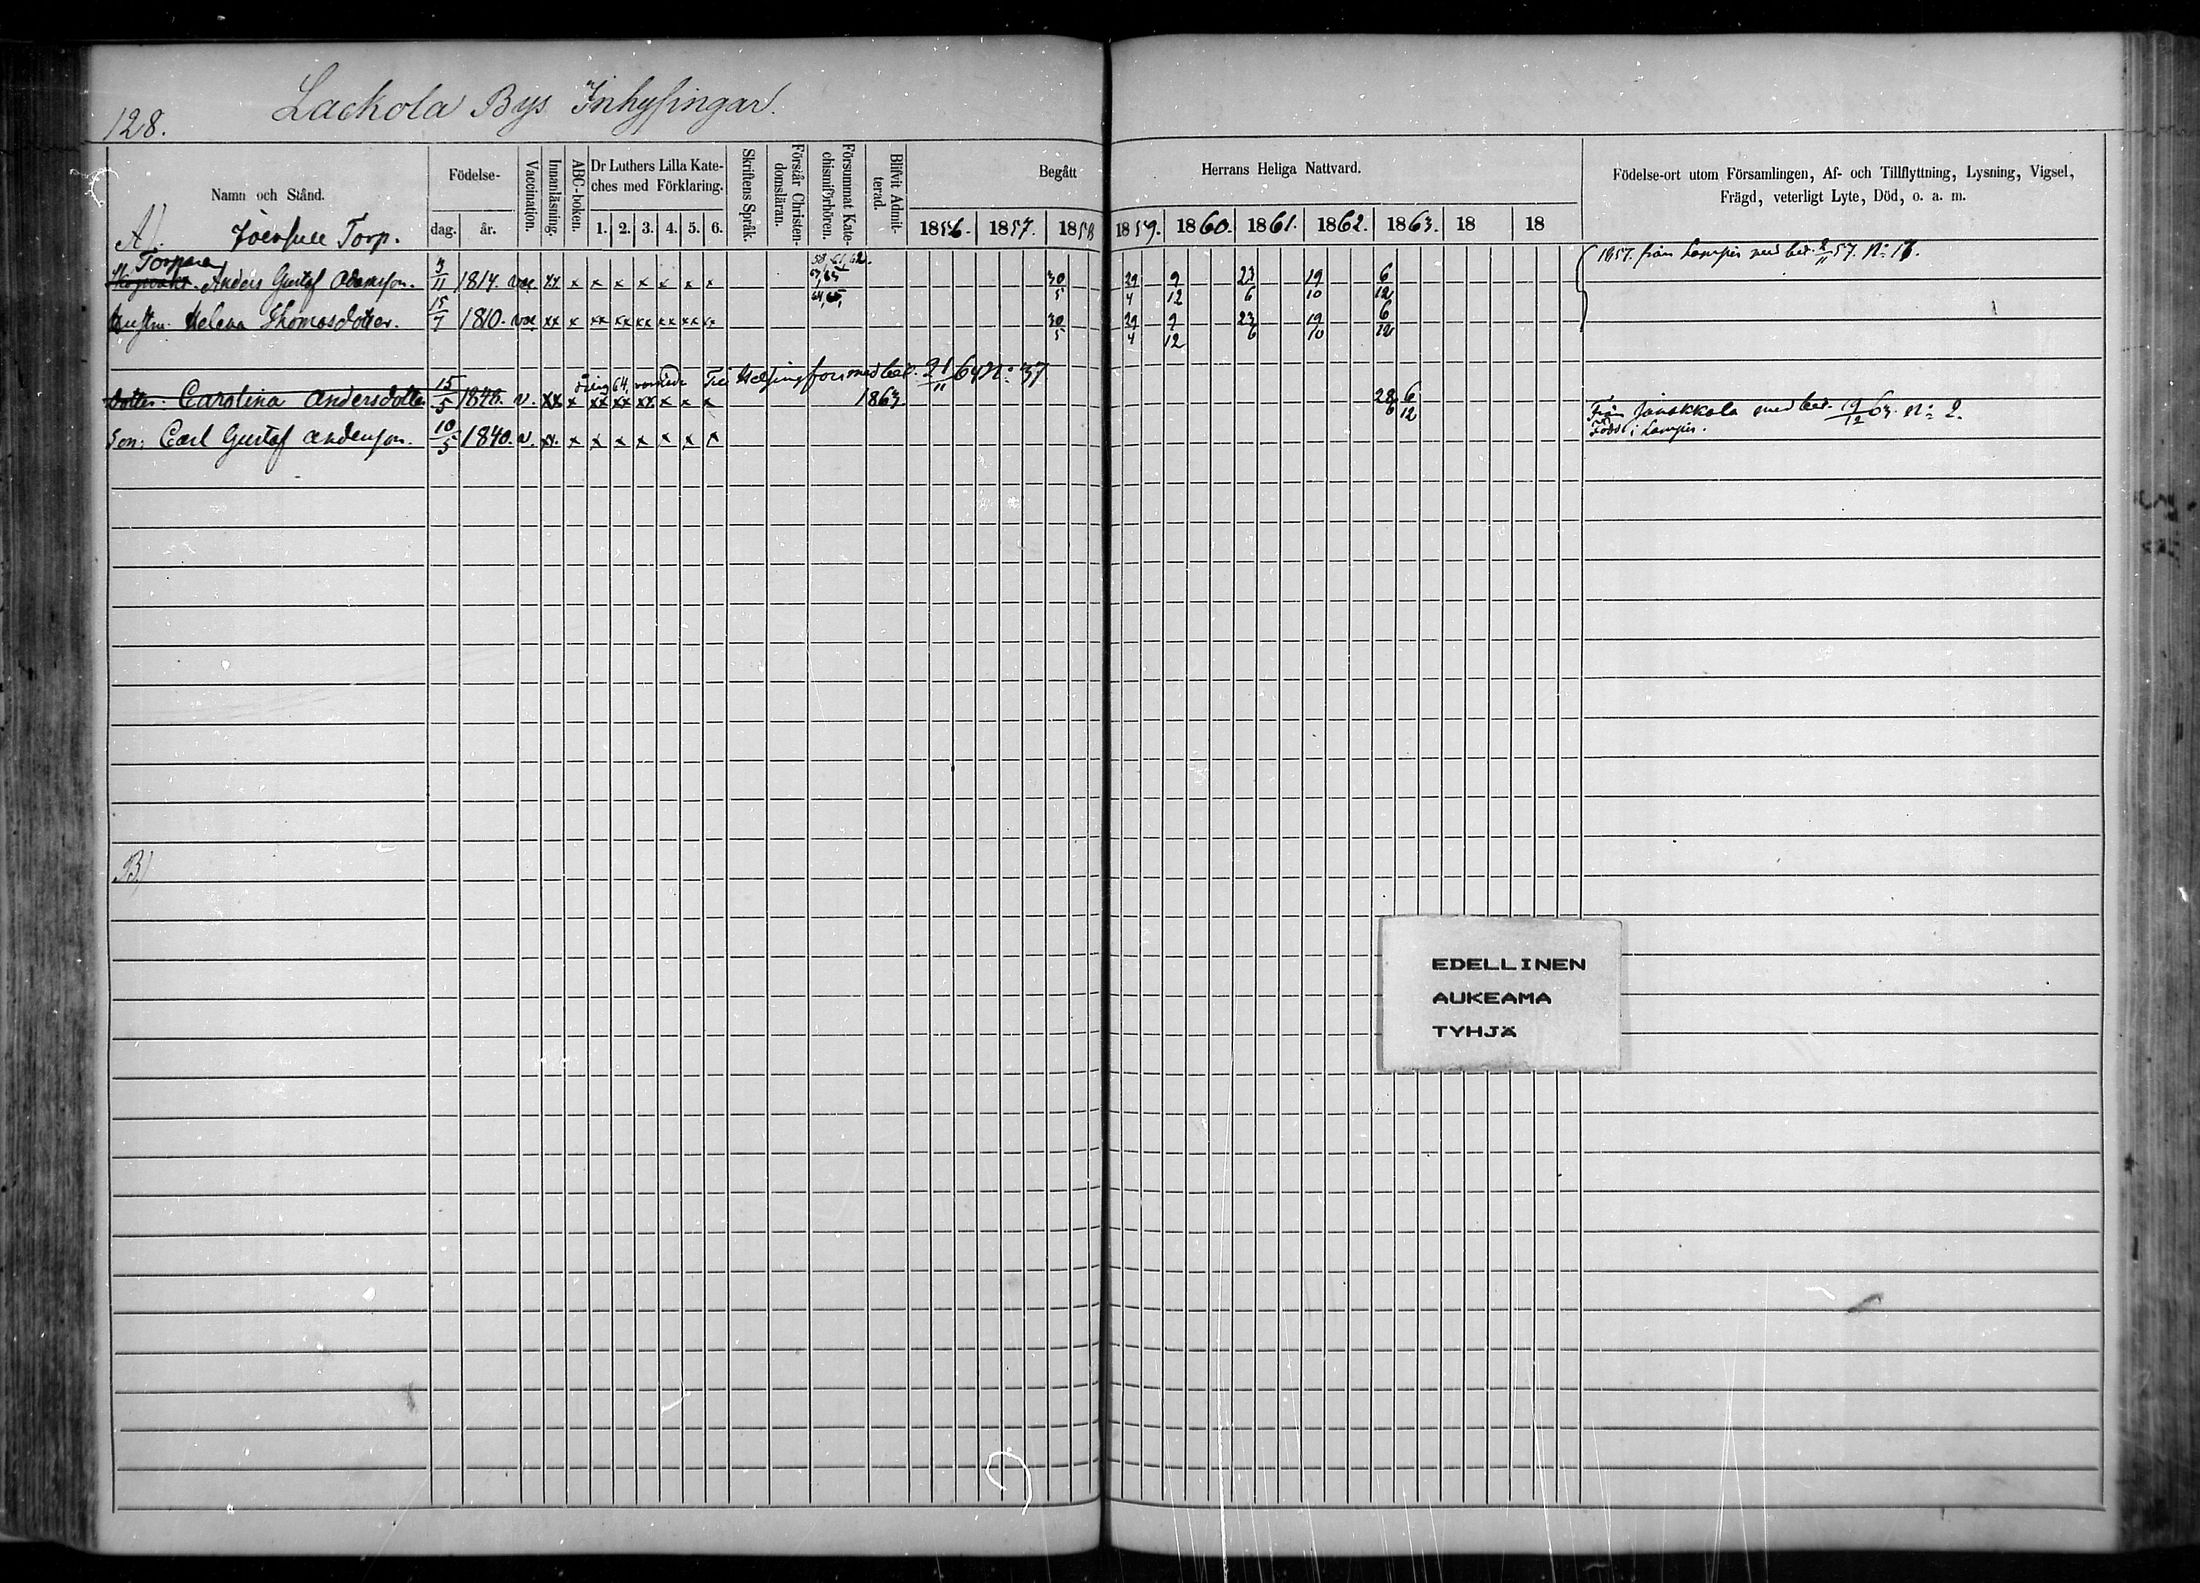 128.
Lackola Bys Inhysingar.
Namn och Stånd.
Födelse-
dag.
år.
Vaccination.
Innanläsning.
ABC-boken.
Dr Luthers Lilla Kate-
ches med Förklaring.
1. 2. 3. 4. 5. 6.
Skriftens Språk.
Förstår Christen-
domsläran.
Försummat Kate-
chismiförhören.
Blifvit Admit-
terad.
Begått
Herrans Heliga Nattvard.
1856. 1857. 1858 1859. 1860. 1861. 1862. 1863. 18 18
Födelse-ort utom Församlingen, Af- och Tillflyttning, Lysning, Vigsel,
Frägd, veterligt Lyte, Död, o. a. m.
A). Torp.
Torpare
Anders Gustaf Adamsson. 3/11 1814. vac xx x x x x x x x 30/5 29/4 9/12 23/6 19/10 6/12 1857. från Lampis med bet. 57. No
Hustru Helena Thomasdotter. 15/7 1810. vac xx x xx xx xx xx xx x 30/5 29/4 9/12 23/6 19/10 6/12
64. Till Helsingfors med bet. 21/11 64 No 37
Dotter: Carolina Andersdotter 15/5 1846. v. xx x xx xx xx x x x 1863 28/6 6/12
Från Janakkala med bet. 19/12 63. No 2.
Född i Lampis.
Son: Carl Gustaf Andersson. 10/5 1840. v. xx. x x x x x x x
B)
EDELLINEN
AUKEAMA
TYHJÄ